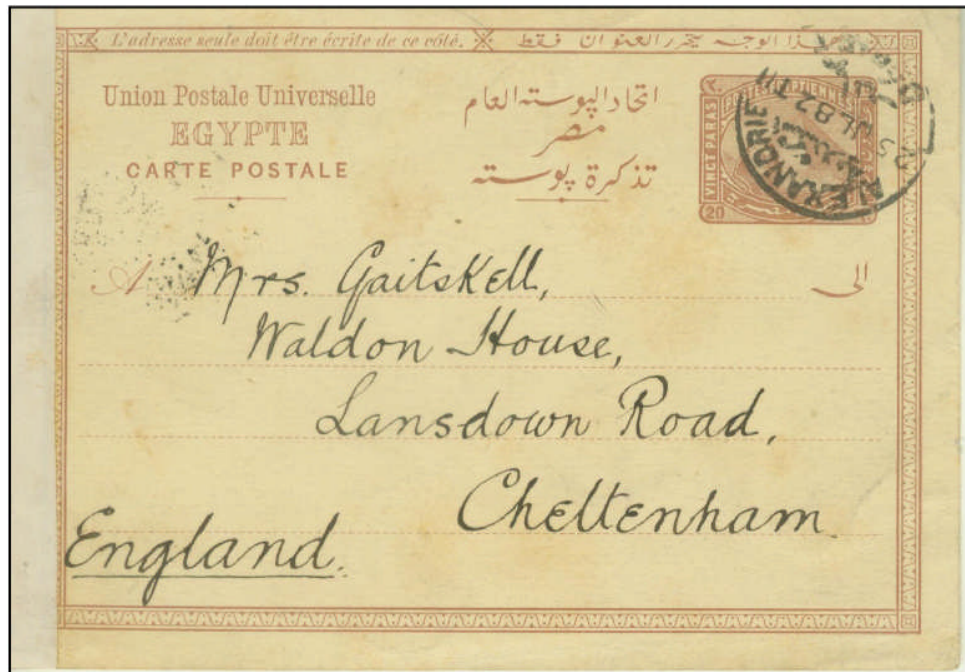 L'adresse seule doit être écrite de ce côté. هذا الوجه يحرر العنوان فقط
Union Postale Universelle
EGYPTE
CARTE POSTALE
اتحاد البوسته العام
مصر
تذكرة بوسته
VINGT PARAS
20
ALEXANDRIE
JL 82
A Mrs. Gaitskell, الى
Waldon House,
Lansdown Road,
Cheltenham
England.